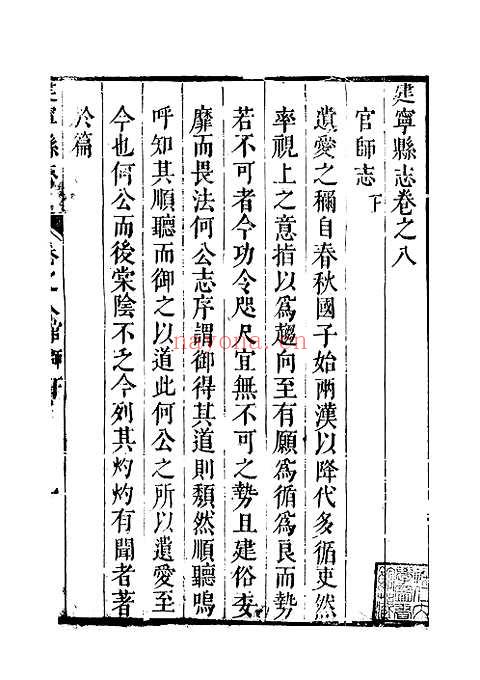 建寧縣志卷之八
官師志 下
遺愛之稱自春秋國子始兩漢以降代多循吏然
率視上之意指以爲趨向至有願爲循爲良而勢
若不可者今功令咫尺宜無不可之勢且建俗委
靡而畏法何公志序謂御得其道則頽然順聽嗚
呼知其順聽而御之以道此何公之所以遺愛至
今也何公而後棠陰不乏今列其灼灼有聞者著
於篇
建寧縣志 卷之八官師下 一
navona.cn